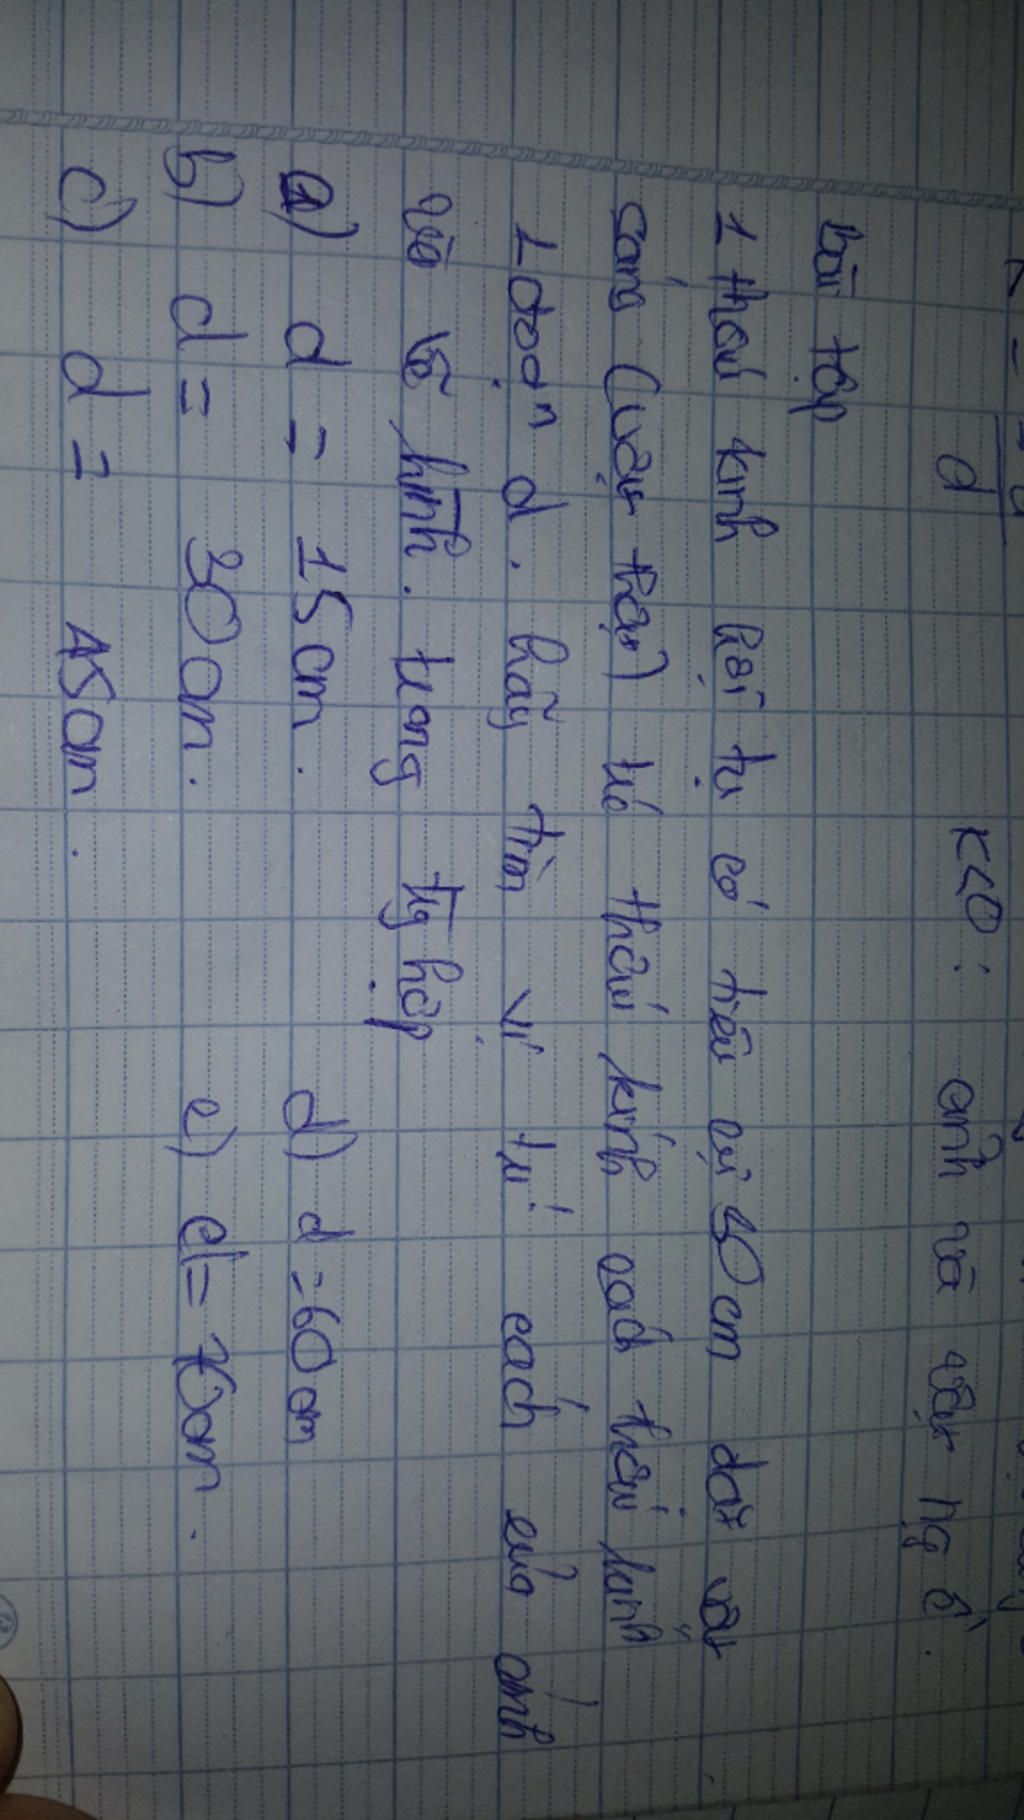 d
K<0: ảnh và vật ng c̉.
Bài tập
1 thấu kính hội tụ có tiêu cự 30 cm đặt vật
sáng (vật thật) trc thấu kính cách thấu kính
1 đoạn d. hãy tìm vị trí cách của ảnh
và vẽ hình. trong tg hợp
a) d = 15 cm. d) d = 60 cm
b) d = 30 cm. e) d = 70 cm.
c) d = 45 cm.